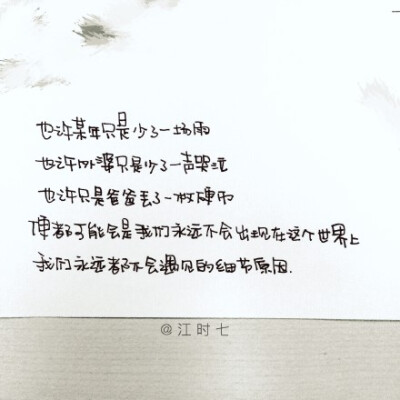 也许某年只是少了一场雨
也许外婆只是少了一声哭泣
也许只是爸爸丢了一枚硬币
便都可能会是我们永远不会出现在这个世界上
我们永远都不会遇见的细节原因.
@江时七